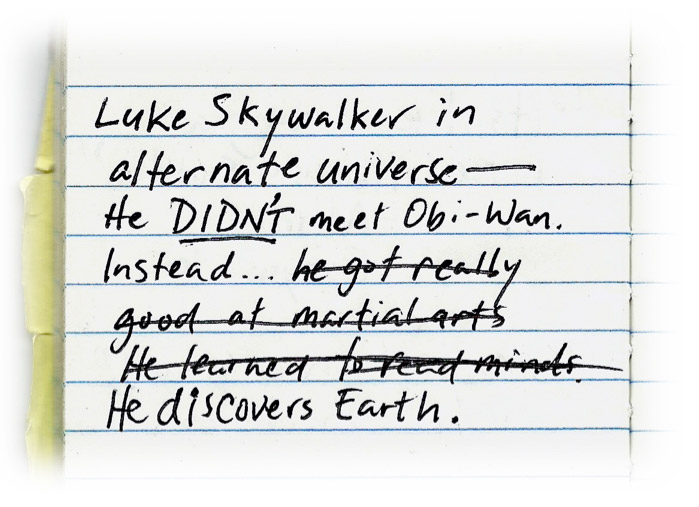 Luke Skywalker in
alternate universe—
He DIDN'T meet Obi-Wan.
Instead... he got really
good at martial arts
He learned to read minds.
He discovers Earth.